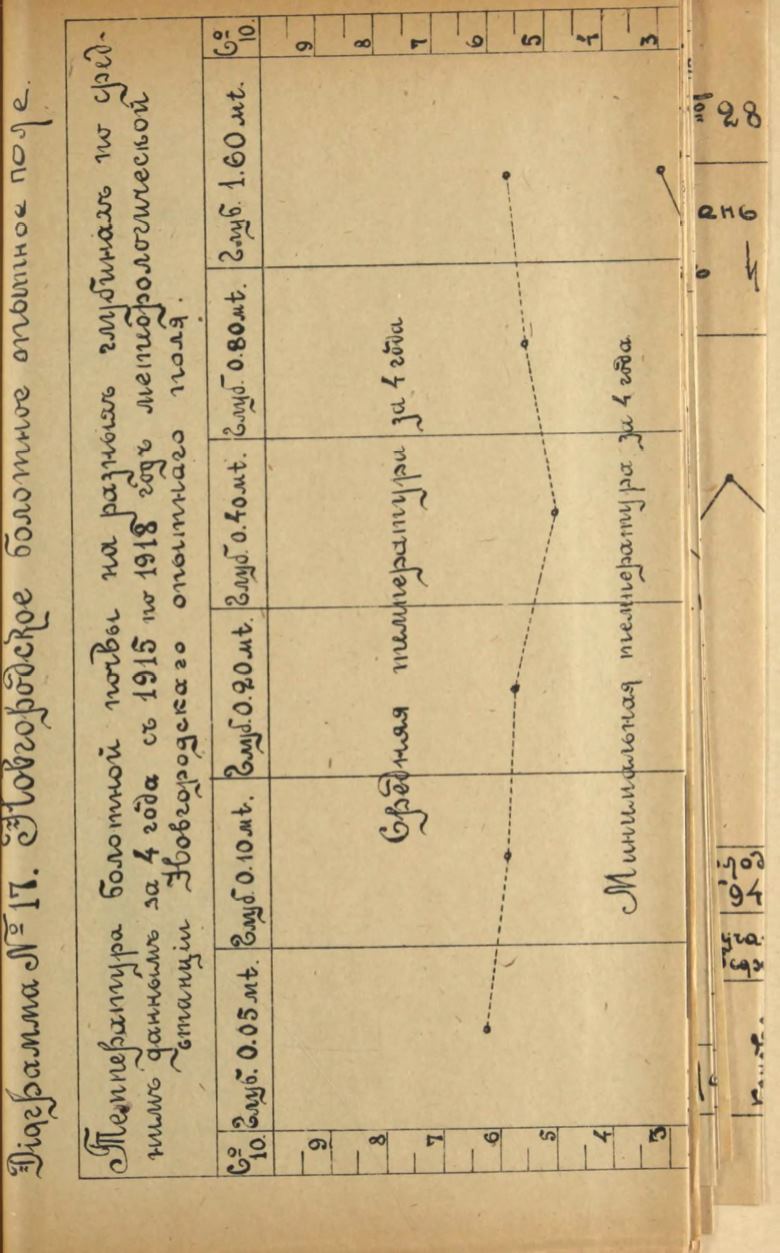 Діаграмма № 17. Новгородское болотное опытное поле.
Температура болотной почвы на разныхъ глубинахъ по сред-
нимъ даннымъ за 4 года съ 1915 по 1918 годъ метеорологической
станціи Новгородскаго опытнаго поля.
C° Глуб. 0.05 mt. Глуб. 0.10 mt. Глуб. 0.20 mt. Глуб. 0.40 mt. Глуб. 0.80 mt. Глуб. 1.60 mt. C°
10. 10.
9 9
8 8
7 7
Средняя температура за 4 года
6 6
5 5
4 4
Минимальная температура за 4 года
3 3
28